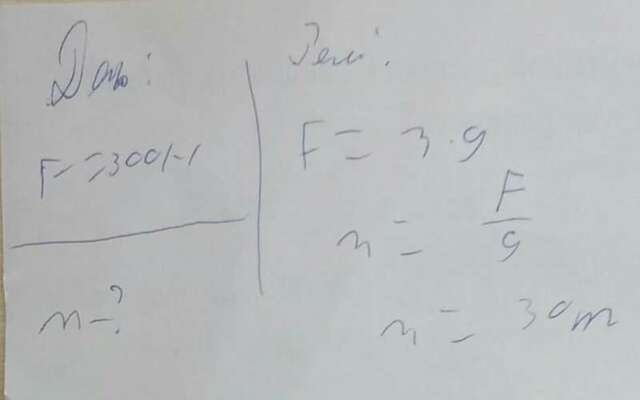 Дано:
F = 300 Н
m - ?
Реш:
F = 3 · g
m = F/g
m = 30 m